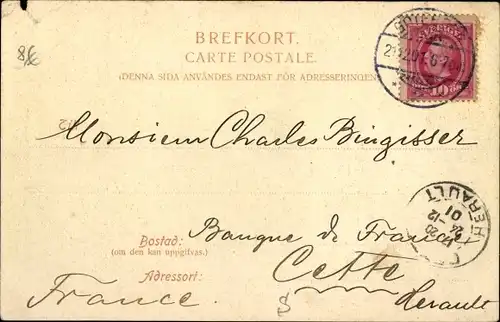 8€
BREFKORT.
CARTE POSTALE.
(DENNA SIDA ANVÄNDES ENDAST FÖR ADRESSERINGEN
SVERIGE
10
Monsieur Charles Bingisser
HERAULT
24 -12
01
Bostad:
(om den kan uppgifvas.)
Banque de France
Adressort:
Cette
France
Herault